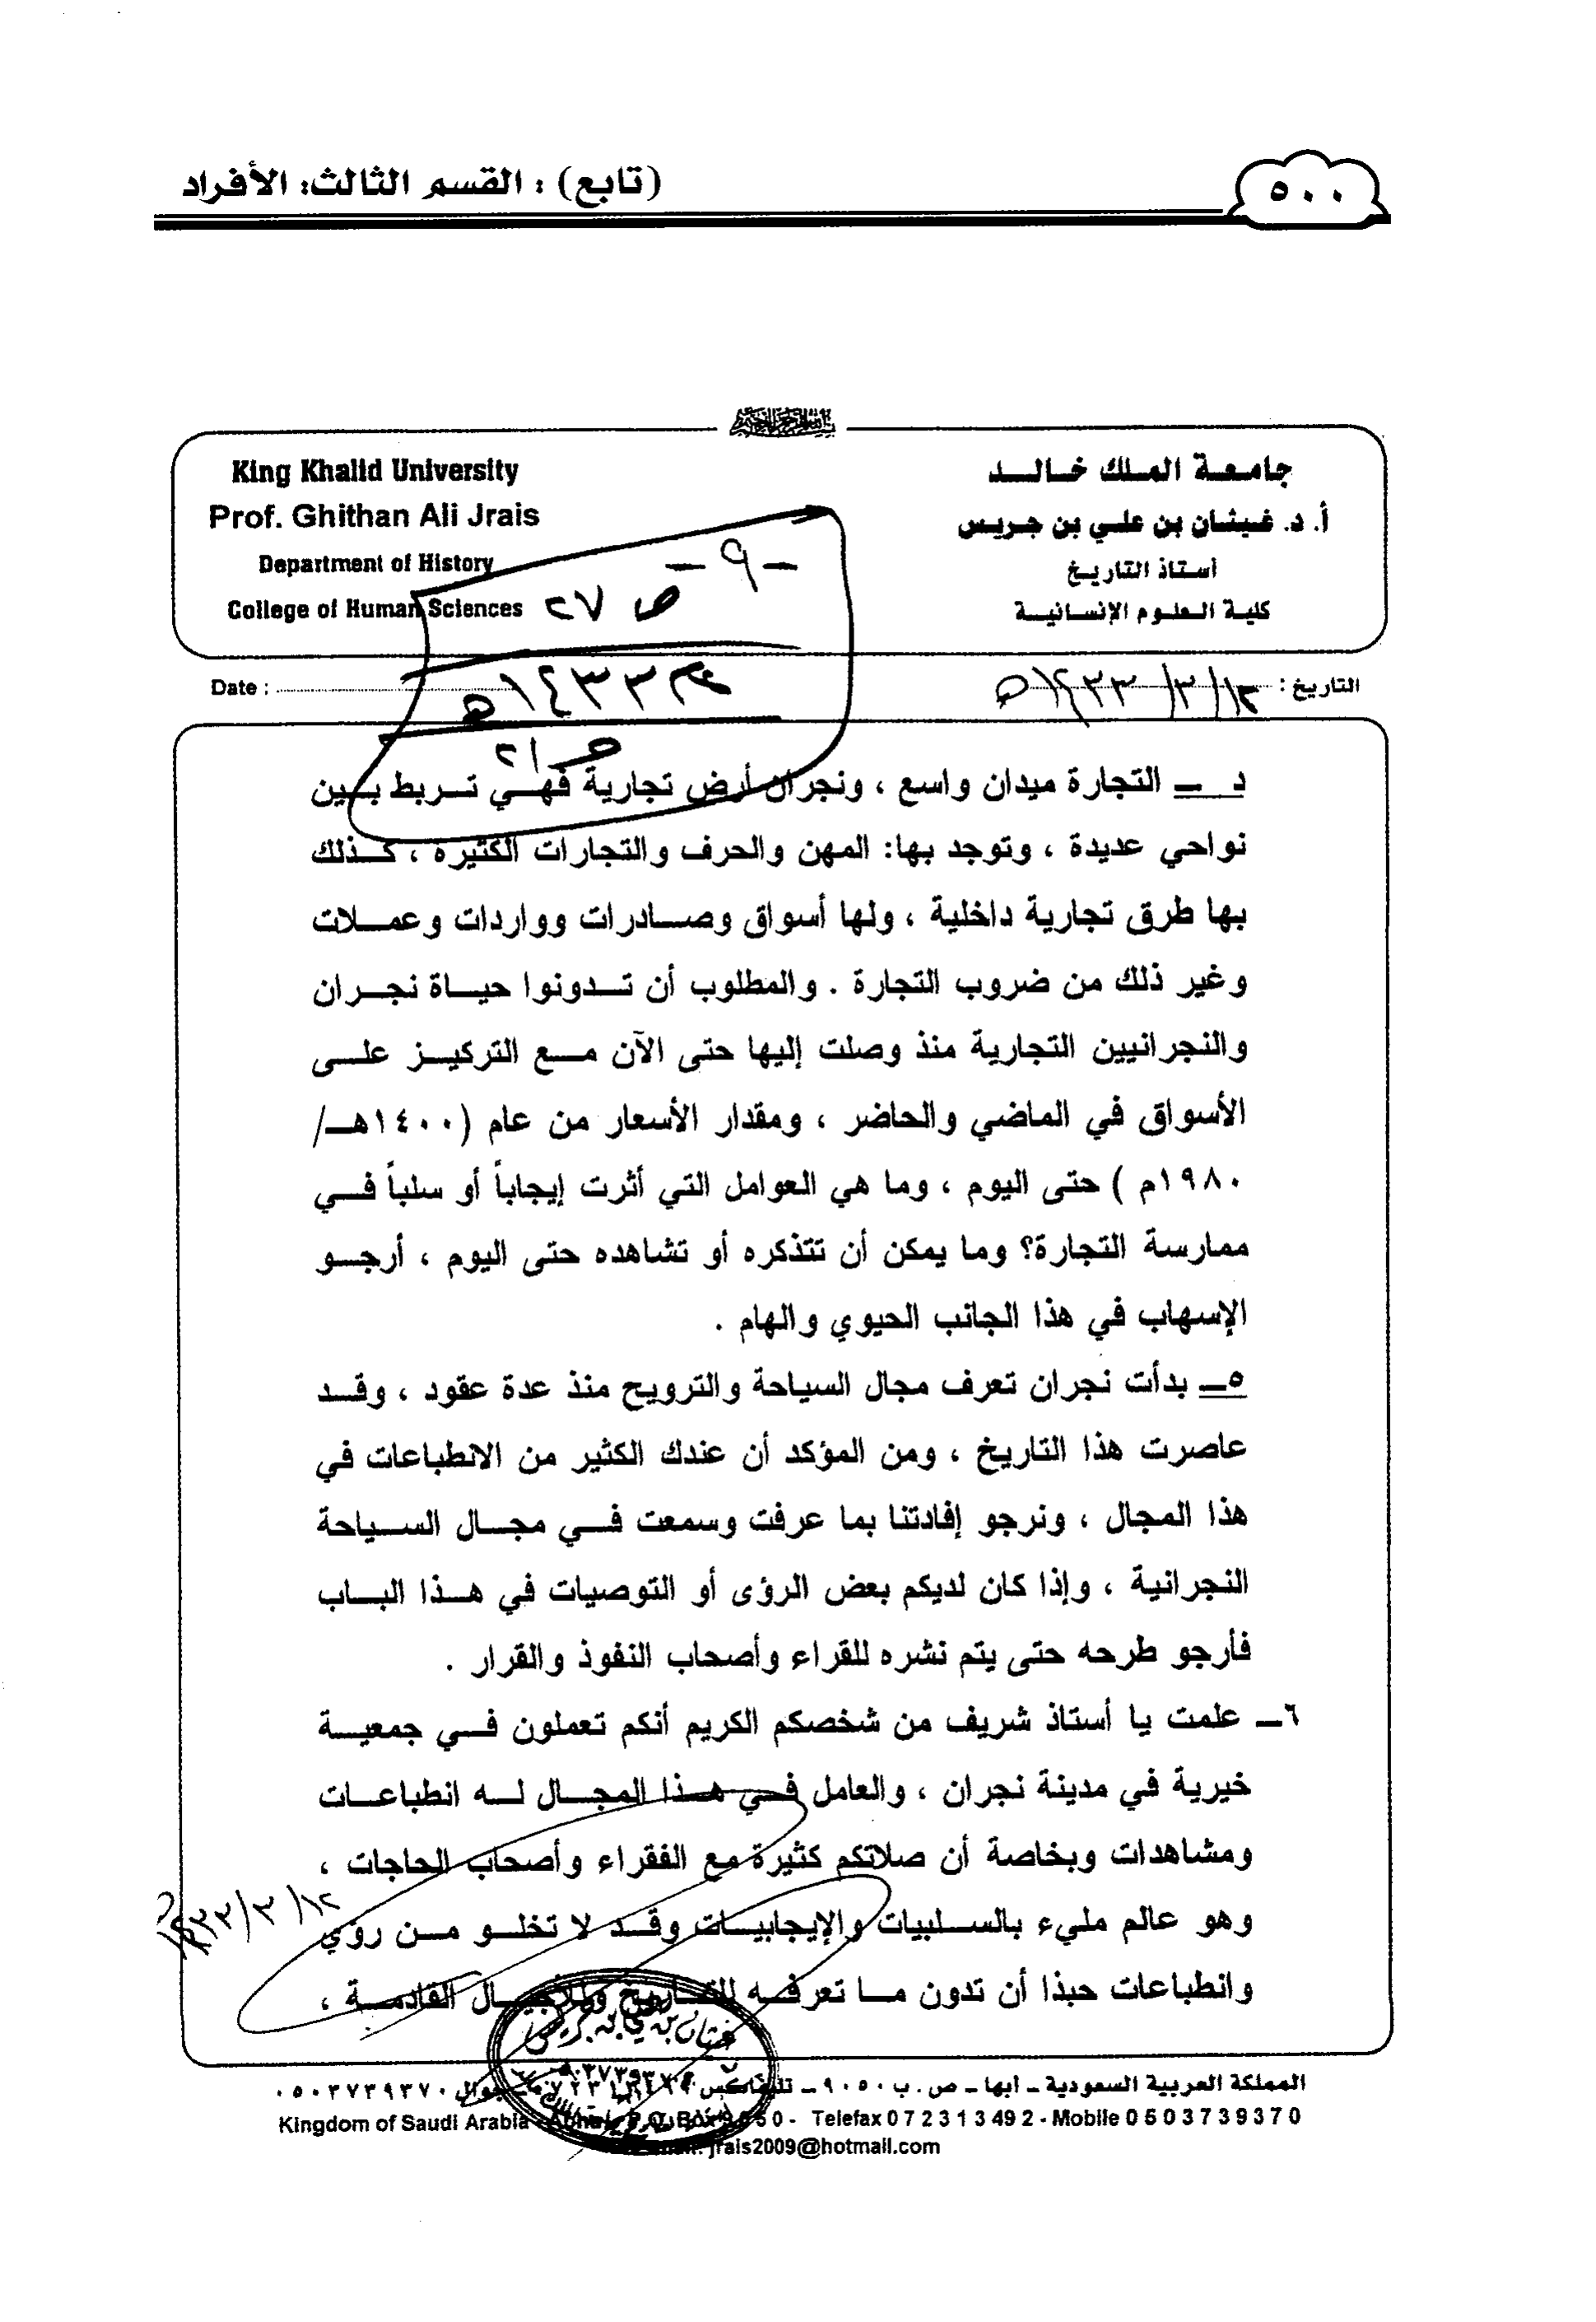 (تابع) : القسم الثالث: الأفراد
٥٠٠
King Khalid University
Prof. Ghithan Ali Jrais
Department of History
College of Human Sciences
جامعة الملك خالد
أ. د. غيثان بن علي بن جريس
أستاذ التاريخ
كلية العلوم الإنسانية
-٩-
ص ٢٧
١٤٣٣هـ
ص ٢١
Date :
التاريخ : ١٢/٣/١٤٣٣هـ
د ـ التجارة ميدان واسع ، ونجران أرض تجارية فهي تربط بين
نواحي عديدة ، وتوجد بها: المهن والحرف والتجارات الكثيرة ، كذلك
بها طرق تجارية داخلية ، ولها أسواق وصادرات وواردات وعملات
وغير ذلك من ضروب التجارة . والمطلوب أن تدونوا حياة نجران
والنجرانيين التجارية منذ وصلت إليها حتى الآن مع التركيز على
الأسواق في الماضي والحاضر ، ومقدار الأسعار من عام (١٤٠٠هـ/
١٩٨٠م ) حتى اليوم ، وما هي العوامل التي أثرت إيجاباً أو سلباً في
ممارسة التجارة؟ وما يمكن أن تتذكره أو تشاهده حتى اليوم ، أرجو
الإسهاب في هذا الجانب الحيوي والهام .
٥ـ بدأت نجران تعرف مجال السياحة والترويح منذ عدة عقود ، وقد
عاصرت هذا التاريخ ، ومن المؤكد أن عندك الكثير من الانطباعات في
هذا المجال ، ونرجو إفادتنا بما عرفت وسمعت في مجال السياحة
النجرانية ، وإذا كان لديكم بعض الرؤى أو التوصيات في هذا الباب
فأرجو طرحه حتى يتم نشره للقراء وأصحاب النفوذ والقرار .
٦ـ علمت يا أستاذ شريف من شخصكم الكريم أنكم تعملون في جمعية
خيرية في مدينة نجران ، والعامل في هذا المجال له انطباعات
ومشاهدات وبخاصة أن صلاتكم كثيرة مع الفقراء وأصحاب الحاجات ،
وهو عالم مليء بالسلبيات والإيجابيات وقد لا تخلو من رؤي
وانطباعات حبذا أن تدون ما تعرفه للتاريخ وللأجيال القادمة ،
١٢/٣/١٤٣٣هـ
غيثان بن علي بن جريس
المملكة العربية السعودية ـ أبها ـ ص . ب ٩٠٥٠ ـ تليفاكس ٠٧٢٣١٣٤٩٢ جوال ٠٥٠٣٧٣٩٣٧٠
Kingdom of Saudi Arabia - Abha - P.O. Box 9050 - Telefax 072313492 - Mobile 0503739370
jrais2009@hotmail.com